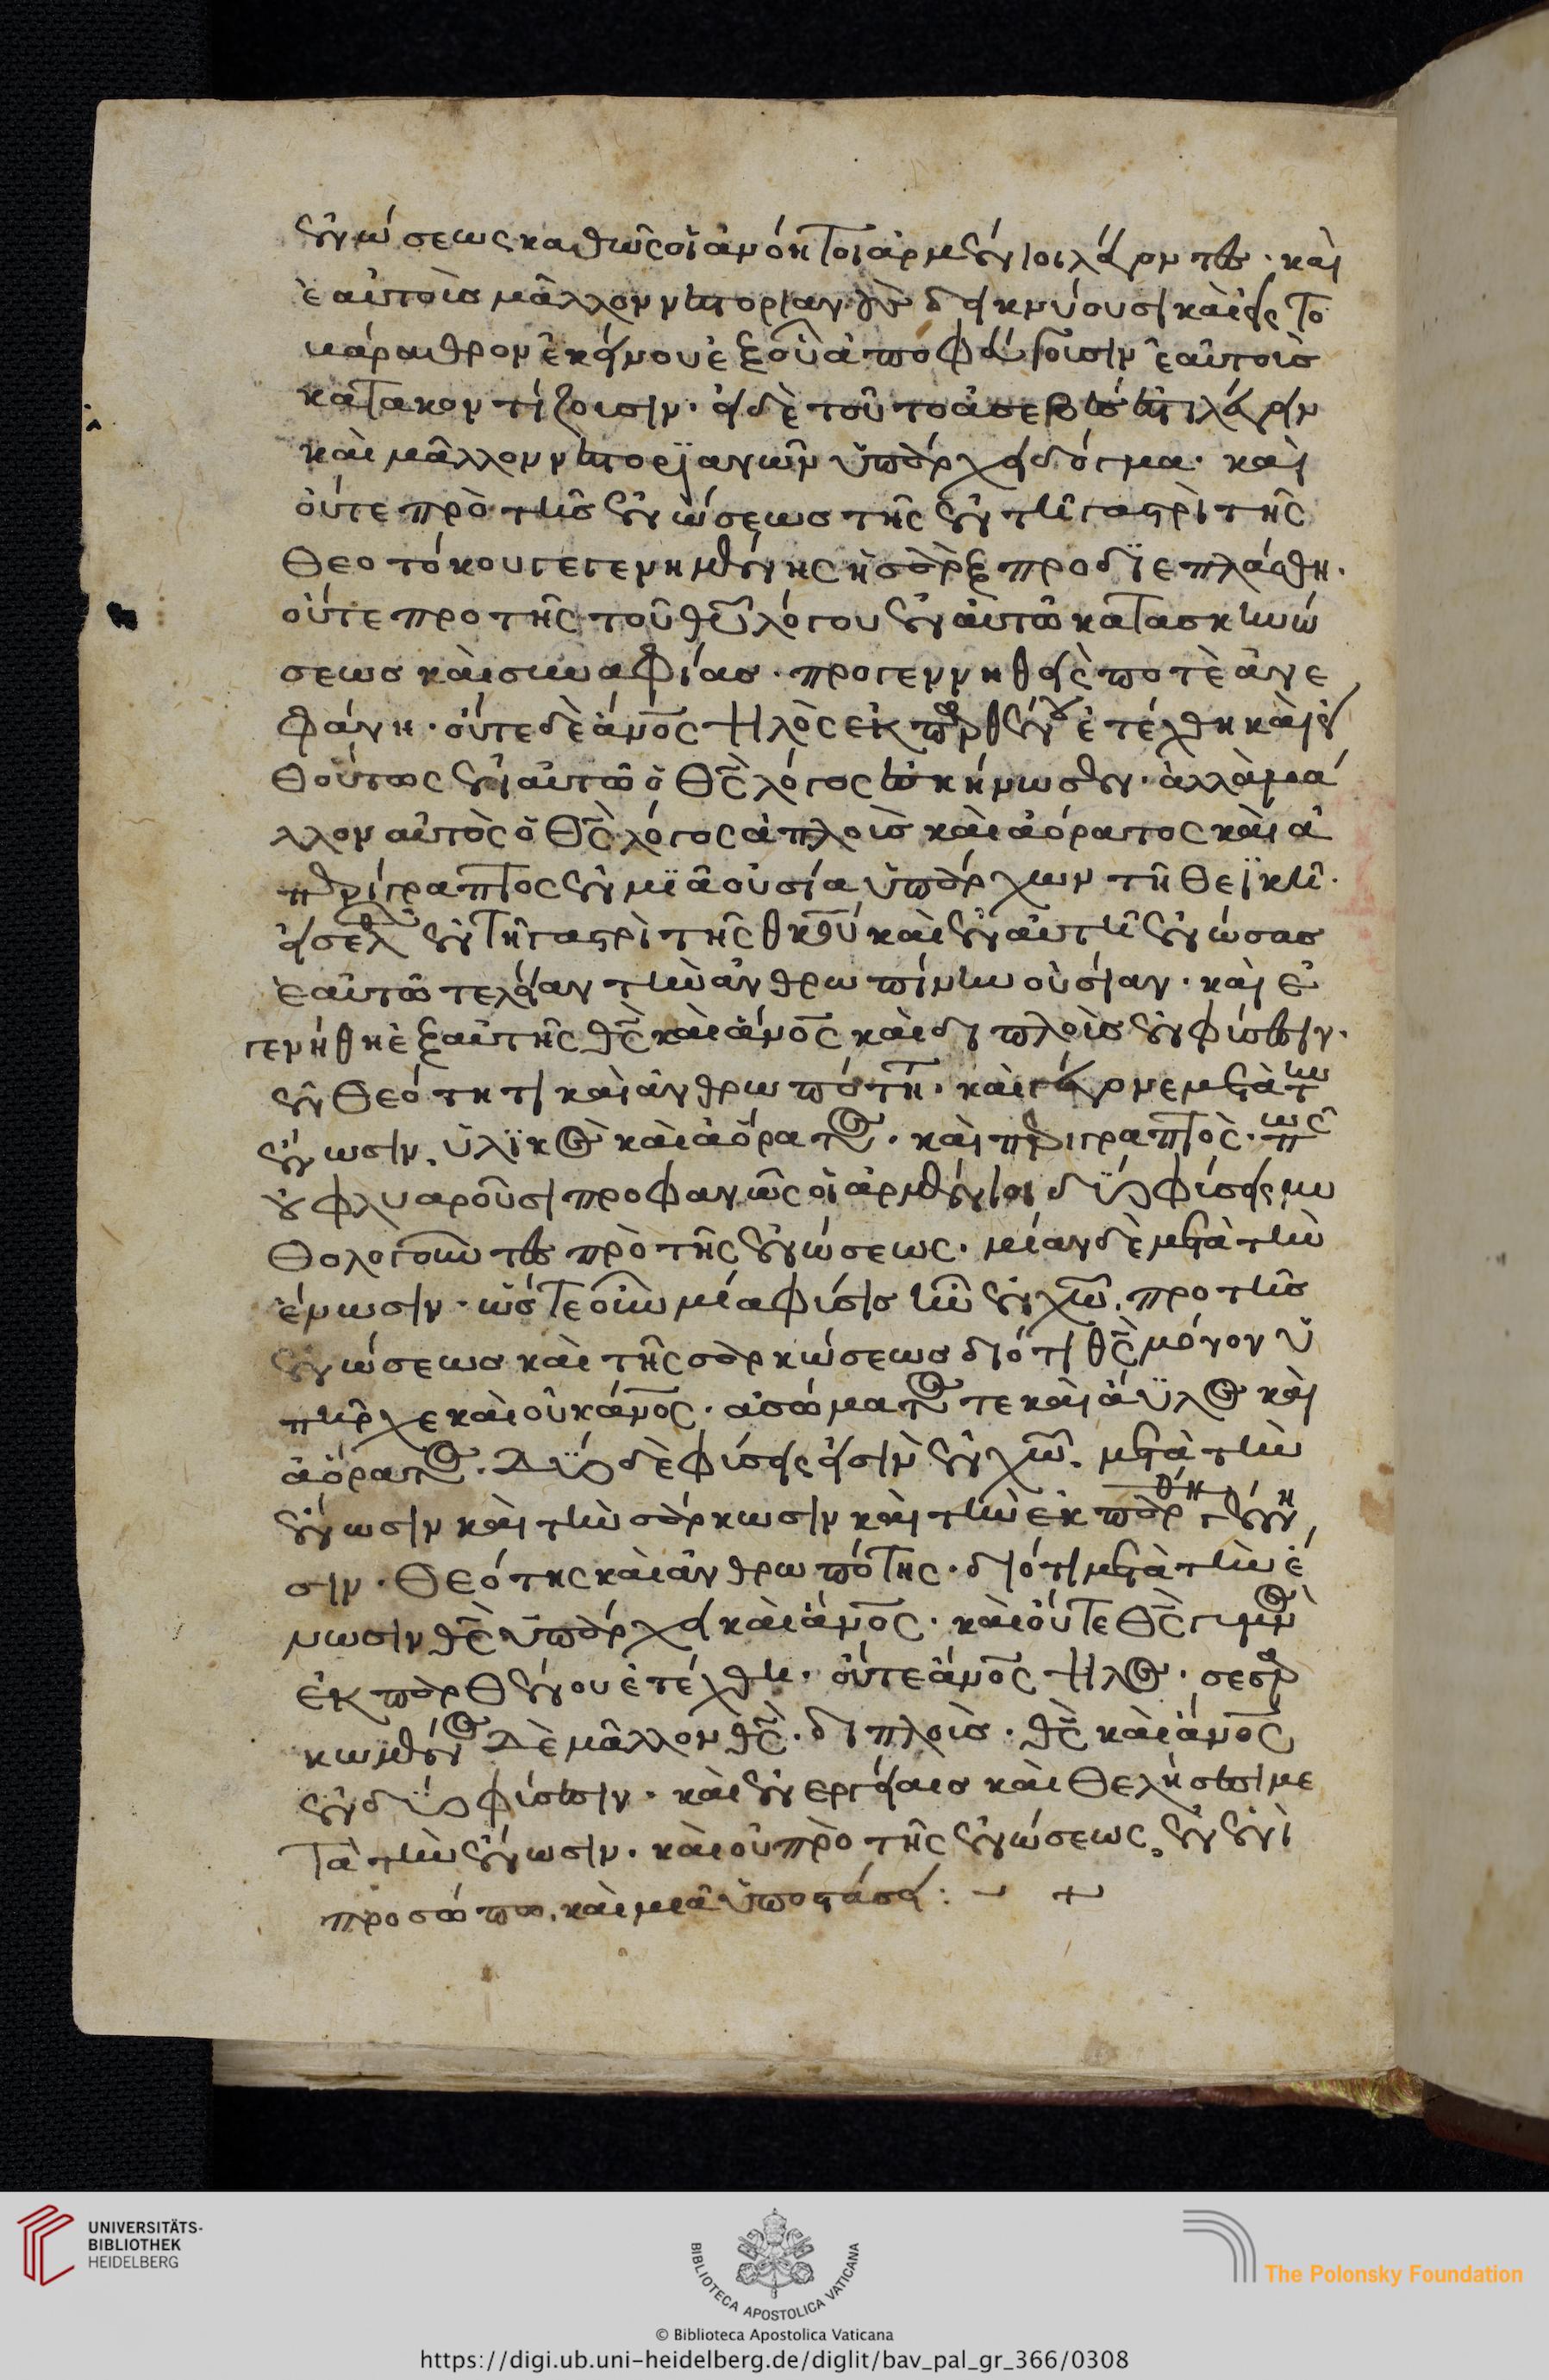 ἑνώσεως καθὼς οἱ ἀνόητοι ἀρμένιοι λέγοντες. καὶ
ἑαυτοὺς μᾶλλον νεστοριανοὺς δεικνύουσι καὶ εἰς τὸ
κάραθρον ἐκείνου ἐξ οὗ ἀποφεύγουσιν ἑαυτοὺς
κατακοντίζουσιν. εἰ δὲ τοῦτο ἀσεβές ἐστι λέγειν
καὶ μᾶλλον νεστοριανῶν ὑπάρχει δόγμα. καὶ
οὔτε πρὸ τῆς ἑνώσεως τῆς ἐν τῆ γαστρὶ τῆς
Θεοτόκου γεγενημένης ἡ σὰρξ προδιεπλάσθη.
οὔτε πρὸ τῆς τοῦ θυ λόγου ἐν αὐτῶ κατασκηνώ
σεως καὶ συναφίας. προγεννηθείς ποτε ἀνε
φάνη. οὔτε δὲ ἄνος ψιλὸς ἐκ παρθένου ἐτέχθη καὶ εἶ
θούτως ἐν αὐτῶ ὁ Θς λόγος ἐσκήνωσεν. ἀλλὰ μᾶ
λλον αὐτὸς ὁ Θς λόγος ἁπλοῦς καὶ ἀόρατος καὶ ἀ
περίγραπτος ἐν μιᾶ οὐσία ὑπάρχων τῆ θεϊκῆ.
εἰσελθὼν ἐν τῆ γαστρὶ τῆς θκου καὶ ἐν αὐτῆ ἑνώσας
ἑαυτῶ τελείαν τὴν ἀνθρωπίνην οὐσίαν. καὶ ἐ
γενήθη ἐξ αὐτῆς θς καὶ ἄνος καὶ διπλοῦς ἐν φύσεσιν.
ἐν Θεότητι καὶ ἀνθρωπότητι. καὶ γέγονε μετὰ τὴν
ἕνωσιν, ὑλικὸς καὶ ἀόρατος. καὶ περιγραπτὸς. πῶς
οὖ φλυαροῦσι προφανῶς οἱ ἀρμένιοι δύο φύσεις μυ
θολογοῦντες πρὸ τῆς ἑνώσεως. μίαν δὲ μετὰ τὴν
ἕνωσιν. ὥστε οὖν μία φύσις ἦν ἐν χω. πρὸ τῆς
ἑνώσεως καὶ τῆς σαρκώσεως διότι θς μόνον ὑ
πῆρχε καὶ οὐκ ἄνος. ἀσώματος τε καὶ ἄϋλος καὶ
ἀόρατος. Δύο δὲ φύσεις εἰσὶν ἐν χω. μετὰ τὴν
ἕνωσιν καὶ τὴν σάρκωσιν καὶ τὴν ἐκ παρθένου γένη
σιν. Θεότης καὶ ἀνθρωπότης. διότι μετὰ τὴν ἕ
νωσιν θς ὑπάρχει καὶ ἄνος. καὶ οὔτε Θς γυμνὸς
ἐκ παρθένου ἐτέχθη. οὔτε ἄνος ψιλὸς. σεσαρ
κωμένος Δὲ μᾶλλον θς. διπλοῦς. θς καὶ ἄνος
ἐν δύο φύσεσιν. καὶ ἐνεργείαις καὶ Θελήσεσι με
τὰ τὴν ἕνωσιν. καὶ οὐ πρὸ τῆς ἑνώσεως, ἐν ἑνὶ
προσώπω, καὶ μιᾶ ὑποστάσει: ~ +
UNIVERSITÄTS-
BIBLIOTHEK
HEIDELBERG
BIBLIOTECA APOSTOLICA VATICANA
The Polonsky Foundation
© Biblioteca Apostolica Vaticana
https://digi.ub.uni-heidelberg.de/diglit/bav_pal_gr_366/0308